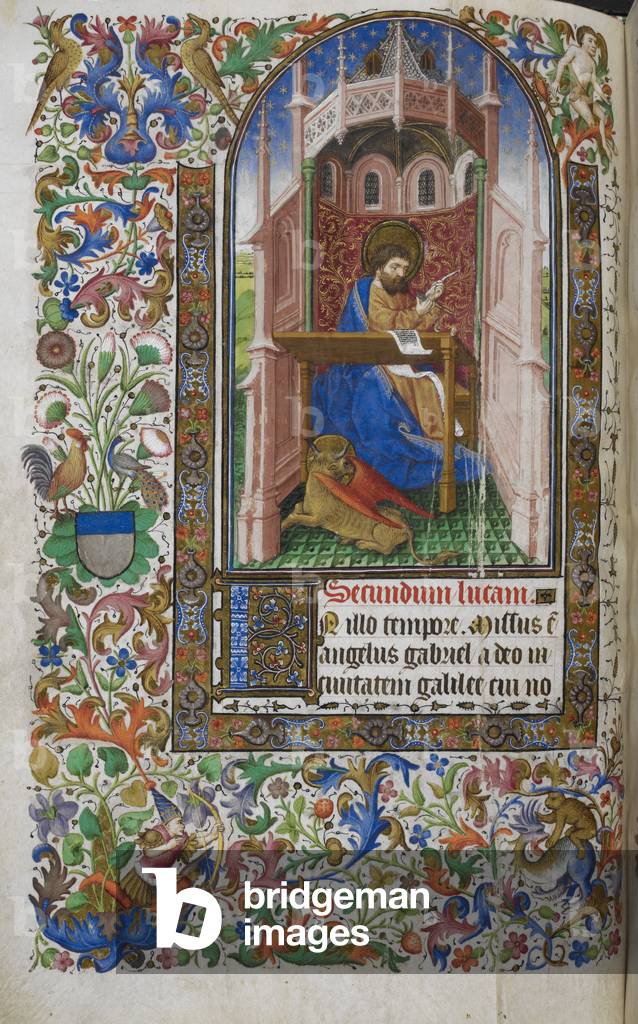 Secundum lucam.
IN illo tempore. Missus ē
angelus gabriel a deo in
ciuitatem galilee cui no
b bridgeman
images